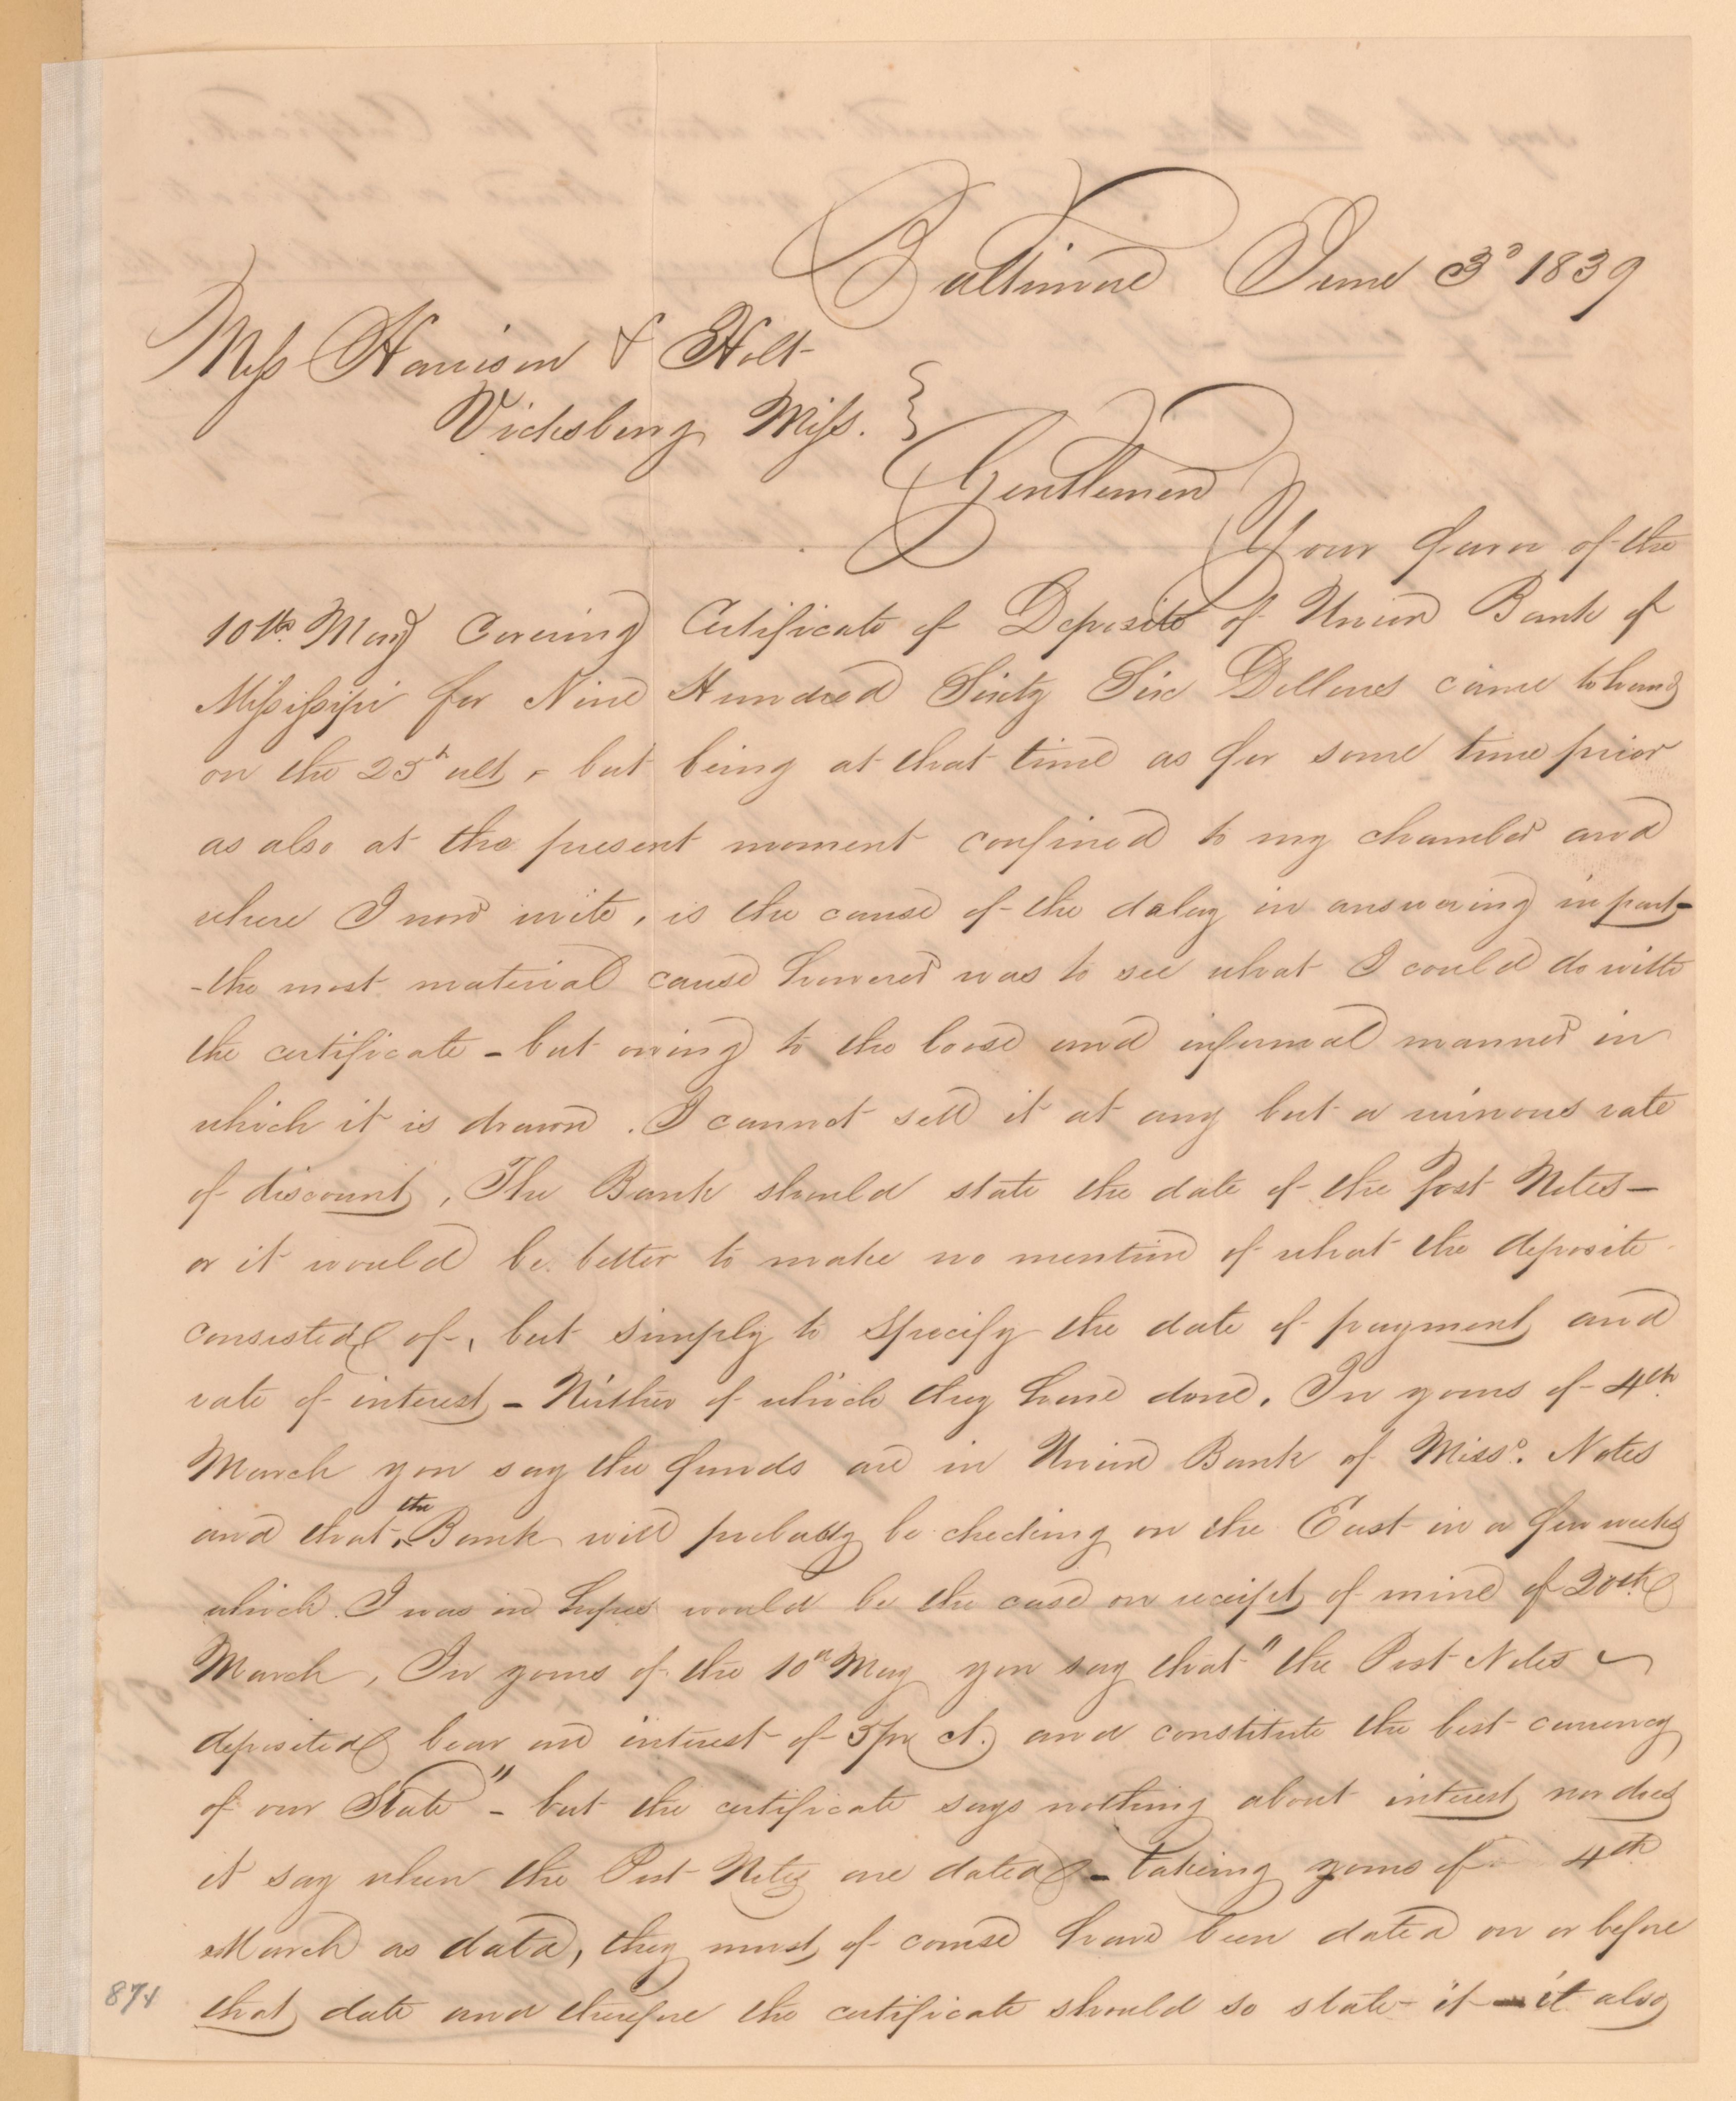 Baltimore June 3d 1839
Mess Harrison & Holt
Vicksburg Miss.
Gentlemen
Your favor of the
10th May Covering Certificate of Deposite of Union Bank of
Missisippi for Nine Hundred Sixty Six Dollars came to hand
on the 25th ult, - but being at that time as for some time prior
as also at the present moment confined to my chamber and
where I now write, is the cause of the delay in answering in part -
- the most material cause however was to see what I could do with
the certificate - but owing to the loose and informal manner in
which it is drawn. I cannot sell it at any but a ruinous rate
of discount, The Bank should state the date of the Post Notes -
or it would be better to make no mention of what the deposite
consisted of, but simply to specify the date of payment and
rate of interest - Neither of which they have done. In yours of 4th
March you say the funds are in Union Bank of Misso. Notes
and that the Bank will probably be checking on the East in a few weeks
which I was in hopes would be the case on receipt of mine of 20th
March, In yours of the 10th May you say that "the Post Notes
deposited bear an interest of 5 pr ct. and constitute the best currency
of our State" - but the certificate says nothing about interest nor does
it say when the Post Notes are dated - taking yours of 4th
March as data, they must of course have been dated on or before
that date and therefore the certificate should so state it - it also
874